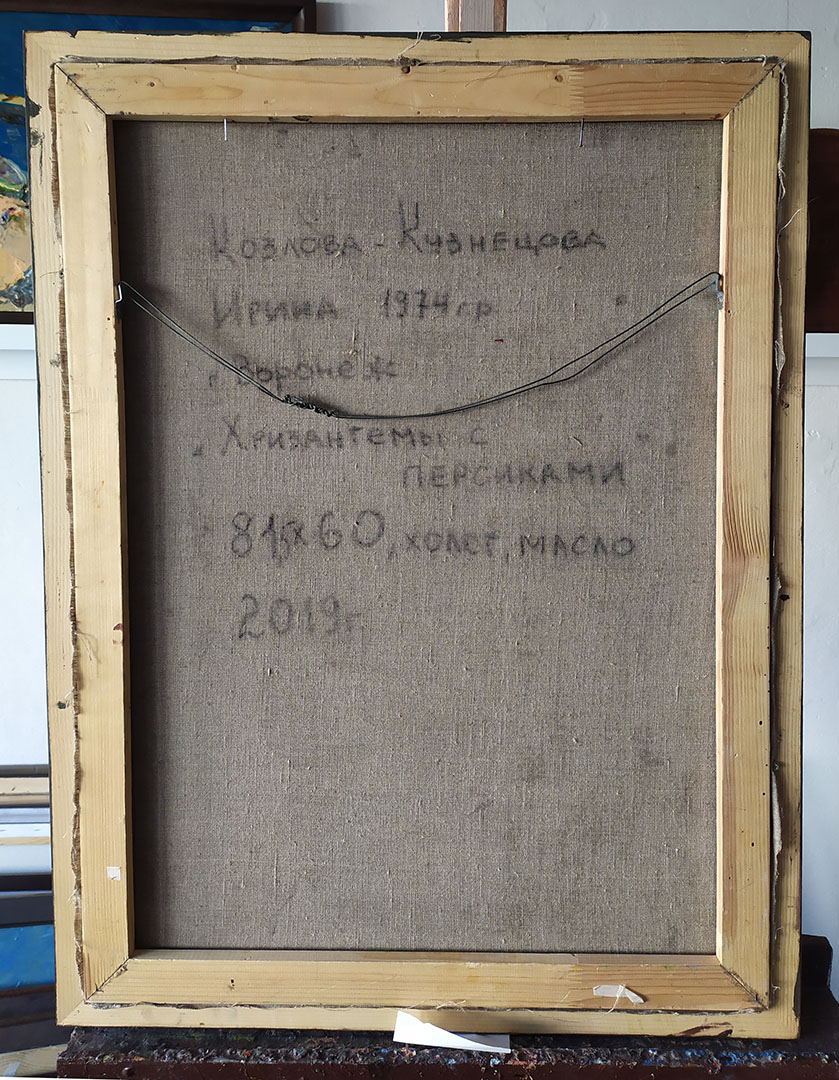 Козлова - Кузнецова
Ирина 1974 гр
г Воронеж
„Хризантемы с
персиками"
81х60, холст, масло
2019г.